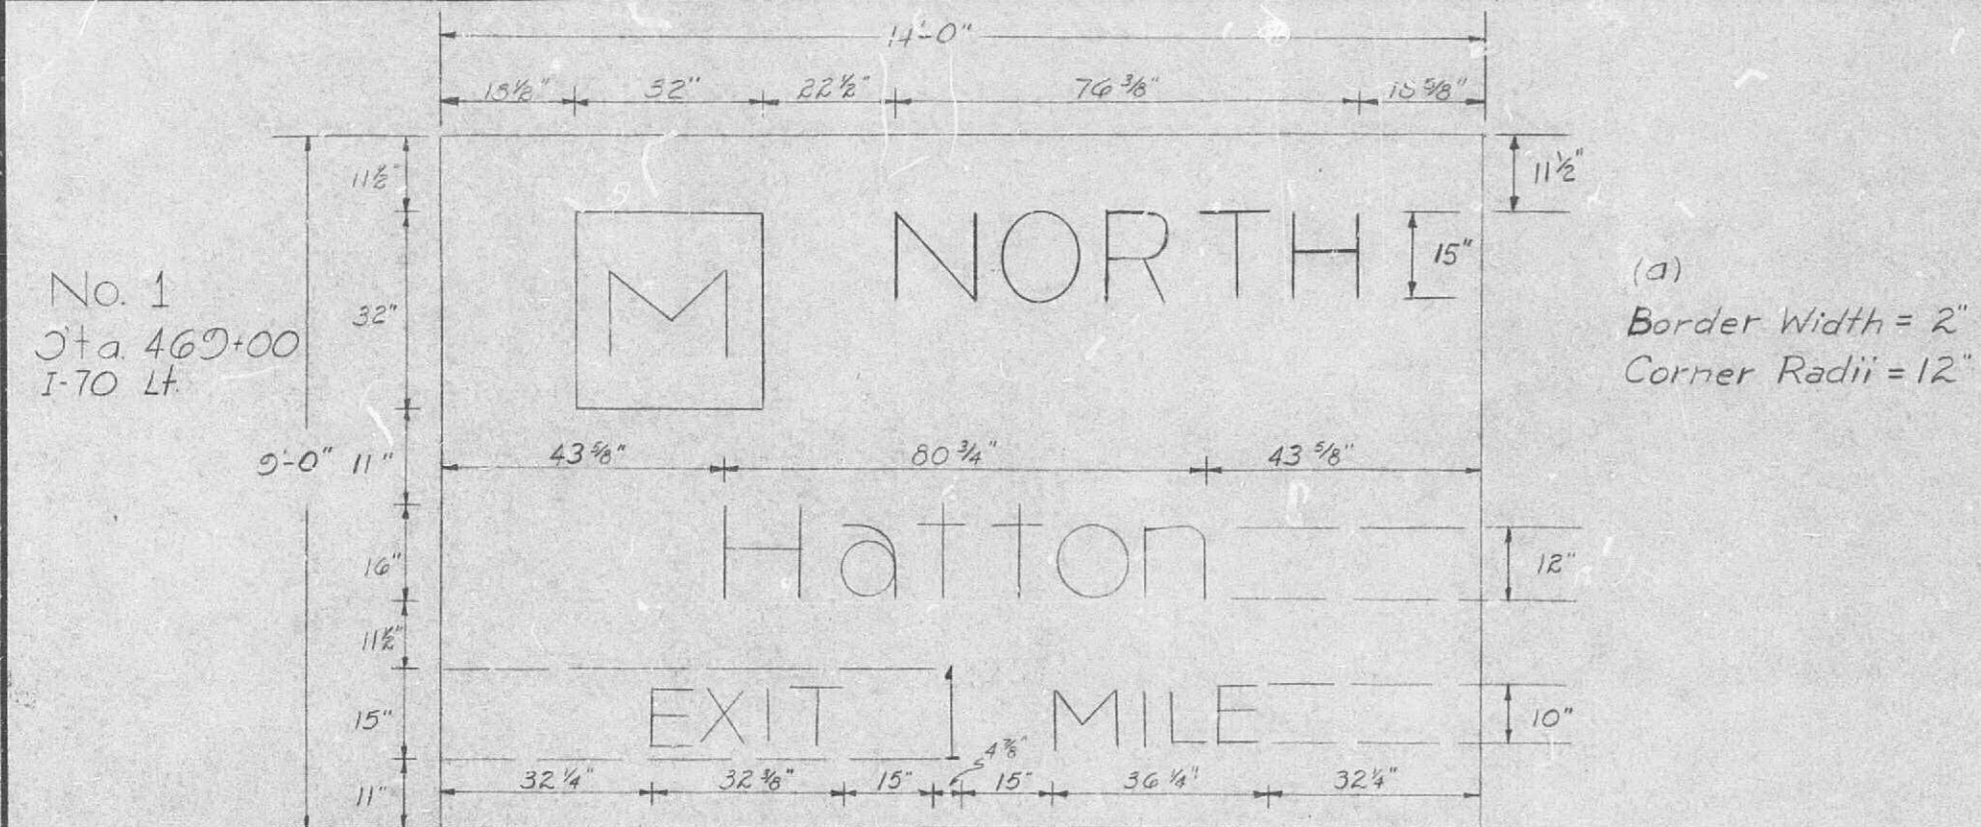 14'-0"
18½" 32" 22½" 76 3/8" 18 5/8"
11½" 11½"
M NORTH 15"
No. 1
Sta. 469+00
I-70 Lt.
32"
(a)
Border Width = 2"
Corner Radii = 12"
9'-0" 11" 43 5/8" 80 3/4" 43 5/8"
16" Hatton 12"
11½"
15" EXIT 1 MILE 10"
32 1/4" 32 3/8" 15" 4 7/8" 15" 36 1/4" 32 1/4"
11"